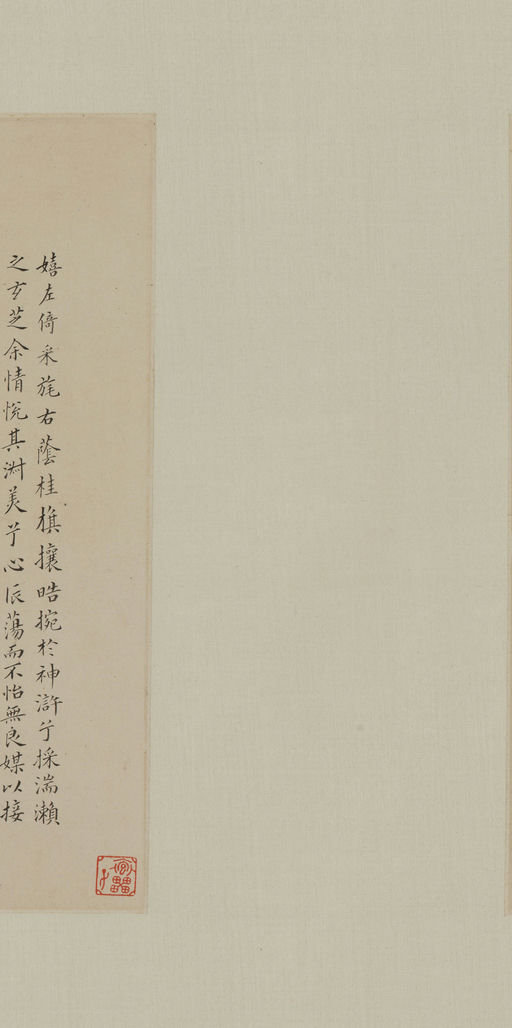 嬉左倚采旄右蔭桂旗攘晧捥於神滸兮採湍瀨
之玄芝余情悅其淑美兮心辰蕩而不怡無良媒以接